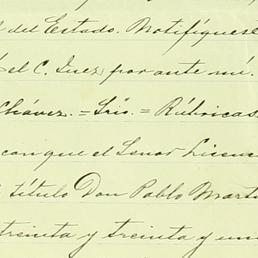 del Estado. Notifíquese
el C. Juez, por ante mí.
Chávez. = Srio. = Rúbricas
con que el Senor Licenc
título Don Pablo Marti
treinta y treinta y un